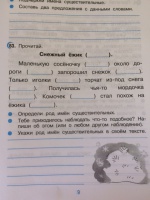 существительные.
Составь два предложения с данными словами.
Прочитай.
Снежный ёжик (        ).
Маленькую сосёночку (        ) около до-
роги (        ) запорошил снежок (        ).
Только иголки (        ) торчат из-под снега
(        ). Получилась чья-то мордочка
(        ). Комочек (        ) стал похож на
ёжика (        ).
Определи род имён существительных.
Тебе приходилось наблюдать что-то подобное? На-
пиши об этом (или о любом другом наблюдении).
Укажи род имён существительных в своём тексте.